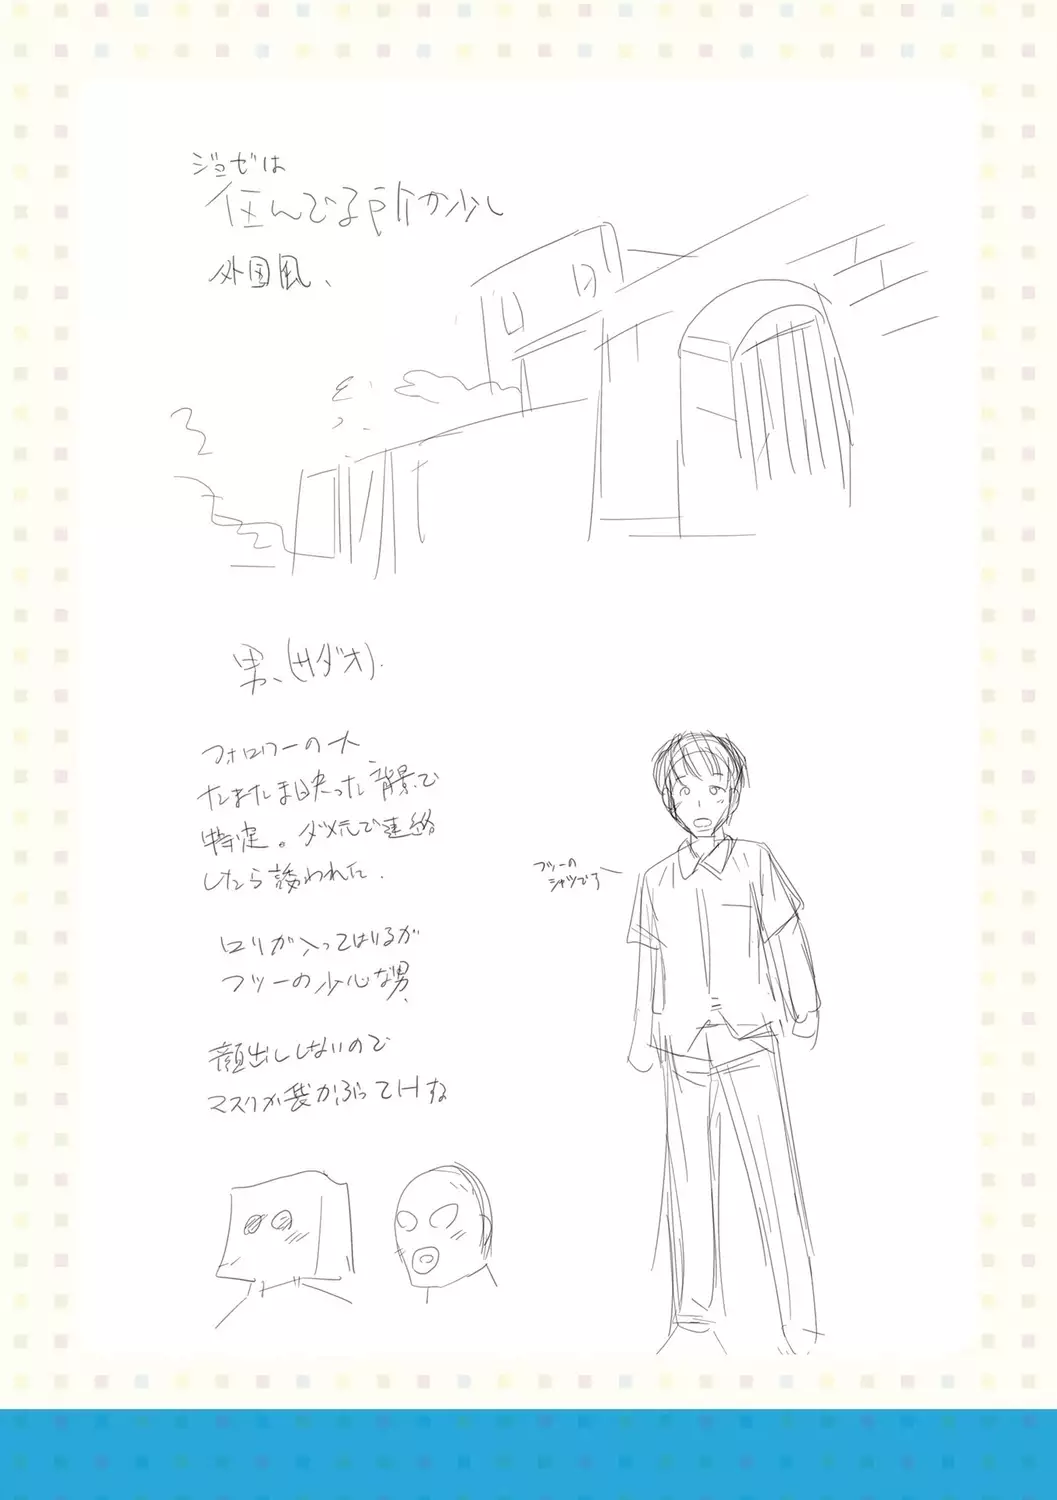 ジョゼは
住んでる所が少し
外国風、
男、(サダオ).
フォロワーの人
たまたま映った背景で
特定。ダメ元で連絡
したら誘われた.
ロリが入ってはいるが
フツーの少心な男、
顔出ししないので
マスクか袋かぶってHする
フツーの
シャツです